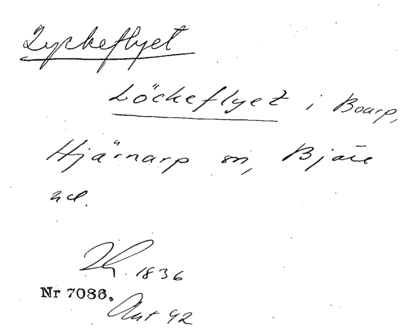 Lyckeflyet
Löckeflyet i Boarp,
Hjärnarp sn, Bjäre
hd.
1836
Nr 7086.
Ant 42